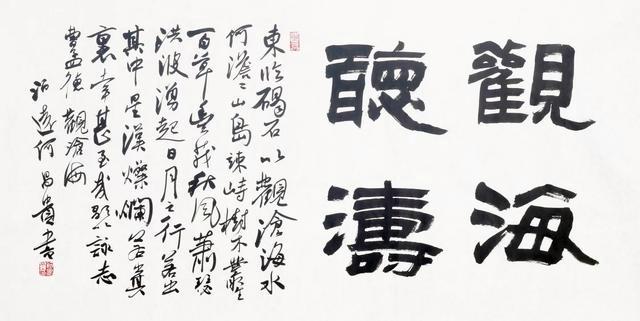 觀海
聽濤
東臨碣石以觀滄海水
何澹〻山島竦峙樹木叢生
百草豐茂秋風蕭瑟
洪波湧起日月之行若出
其中星漢燦爛若出其
裏幸甚至哉歌以詠志
曹孟德觀滄海
何昌貴書